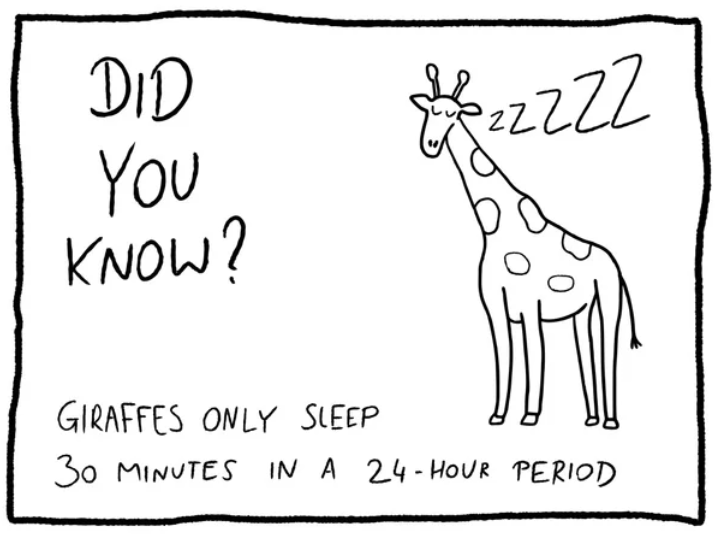 DID
YOU
KNOW?
zzzzz
GIRAFFES ONLY SLEEP
30 MINUTES IN A 24-HOUR PERIOD